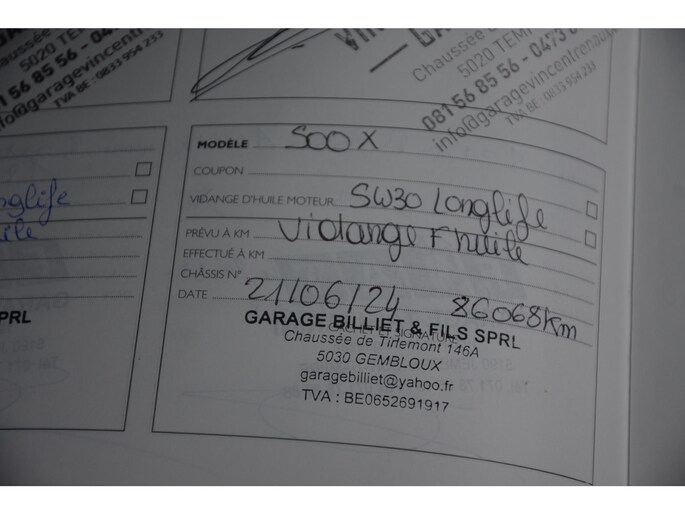 5020 TEM
081 56 85 56 - 04
info@garagevincentrenau
TVA BE : 0833 954 233
Chaussée de
5020 TEM
081 56 85 56 - 0473 6
info@garagevincentrenau
TVA BE : 0833 954 233
nglife
MODÈLE 500X
COUPON
VIDANGE D'HUILE MOTEUR 5W30 Longlife
PRÉVU À KM Vidange F huile
EFFECTUÉ À KM
CHÂSSIS N°
DATE 21/06/24 86068km
CACHET ET SIGNATURE
GARAGE BILLIET & FILS SPRL
Chaussée de Tirlemont 146A
5030 GEMBLOUX
garagebilliet@yahoo.fr
TVA : BE0652691917
PRL